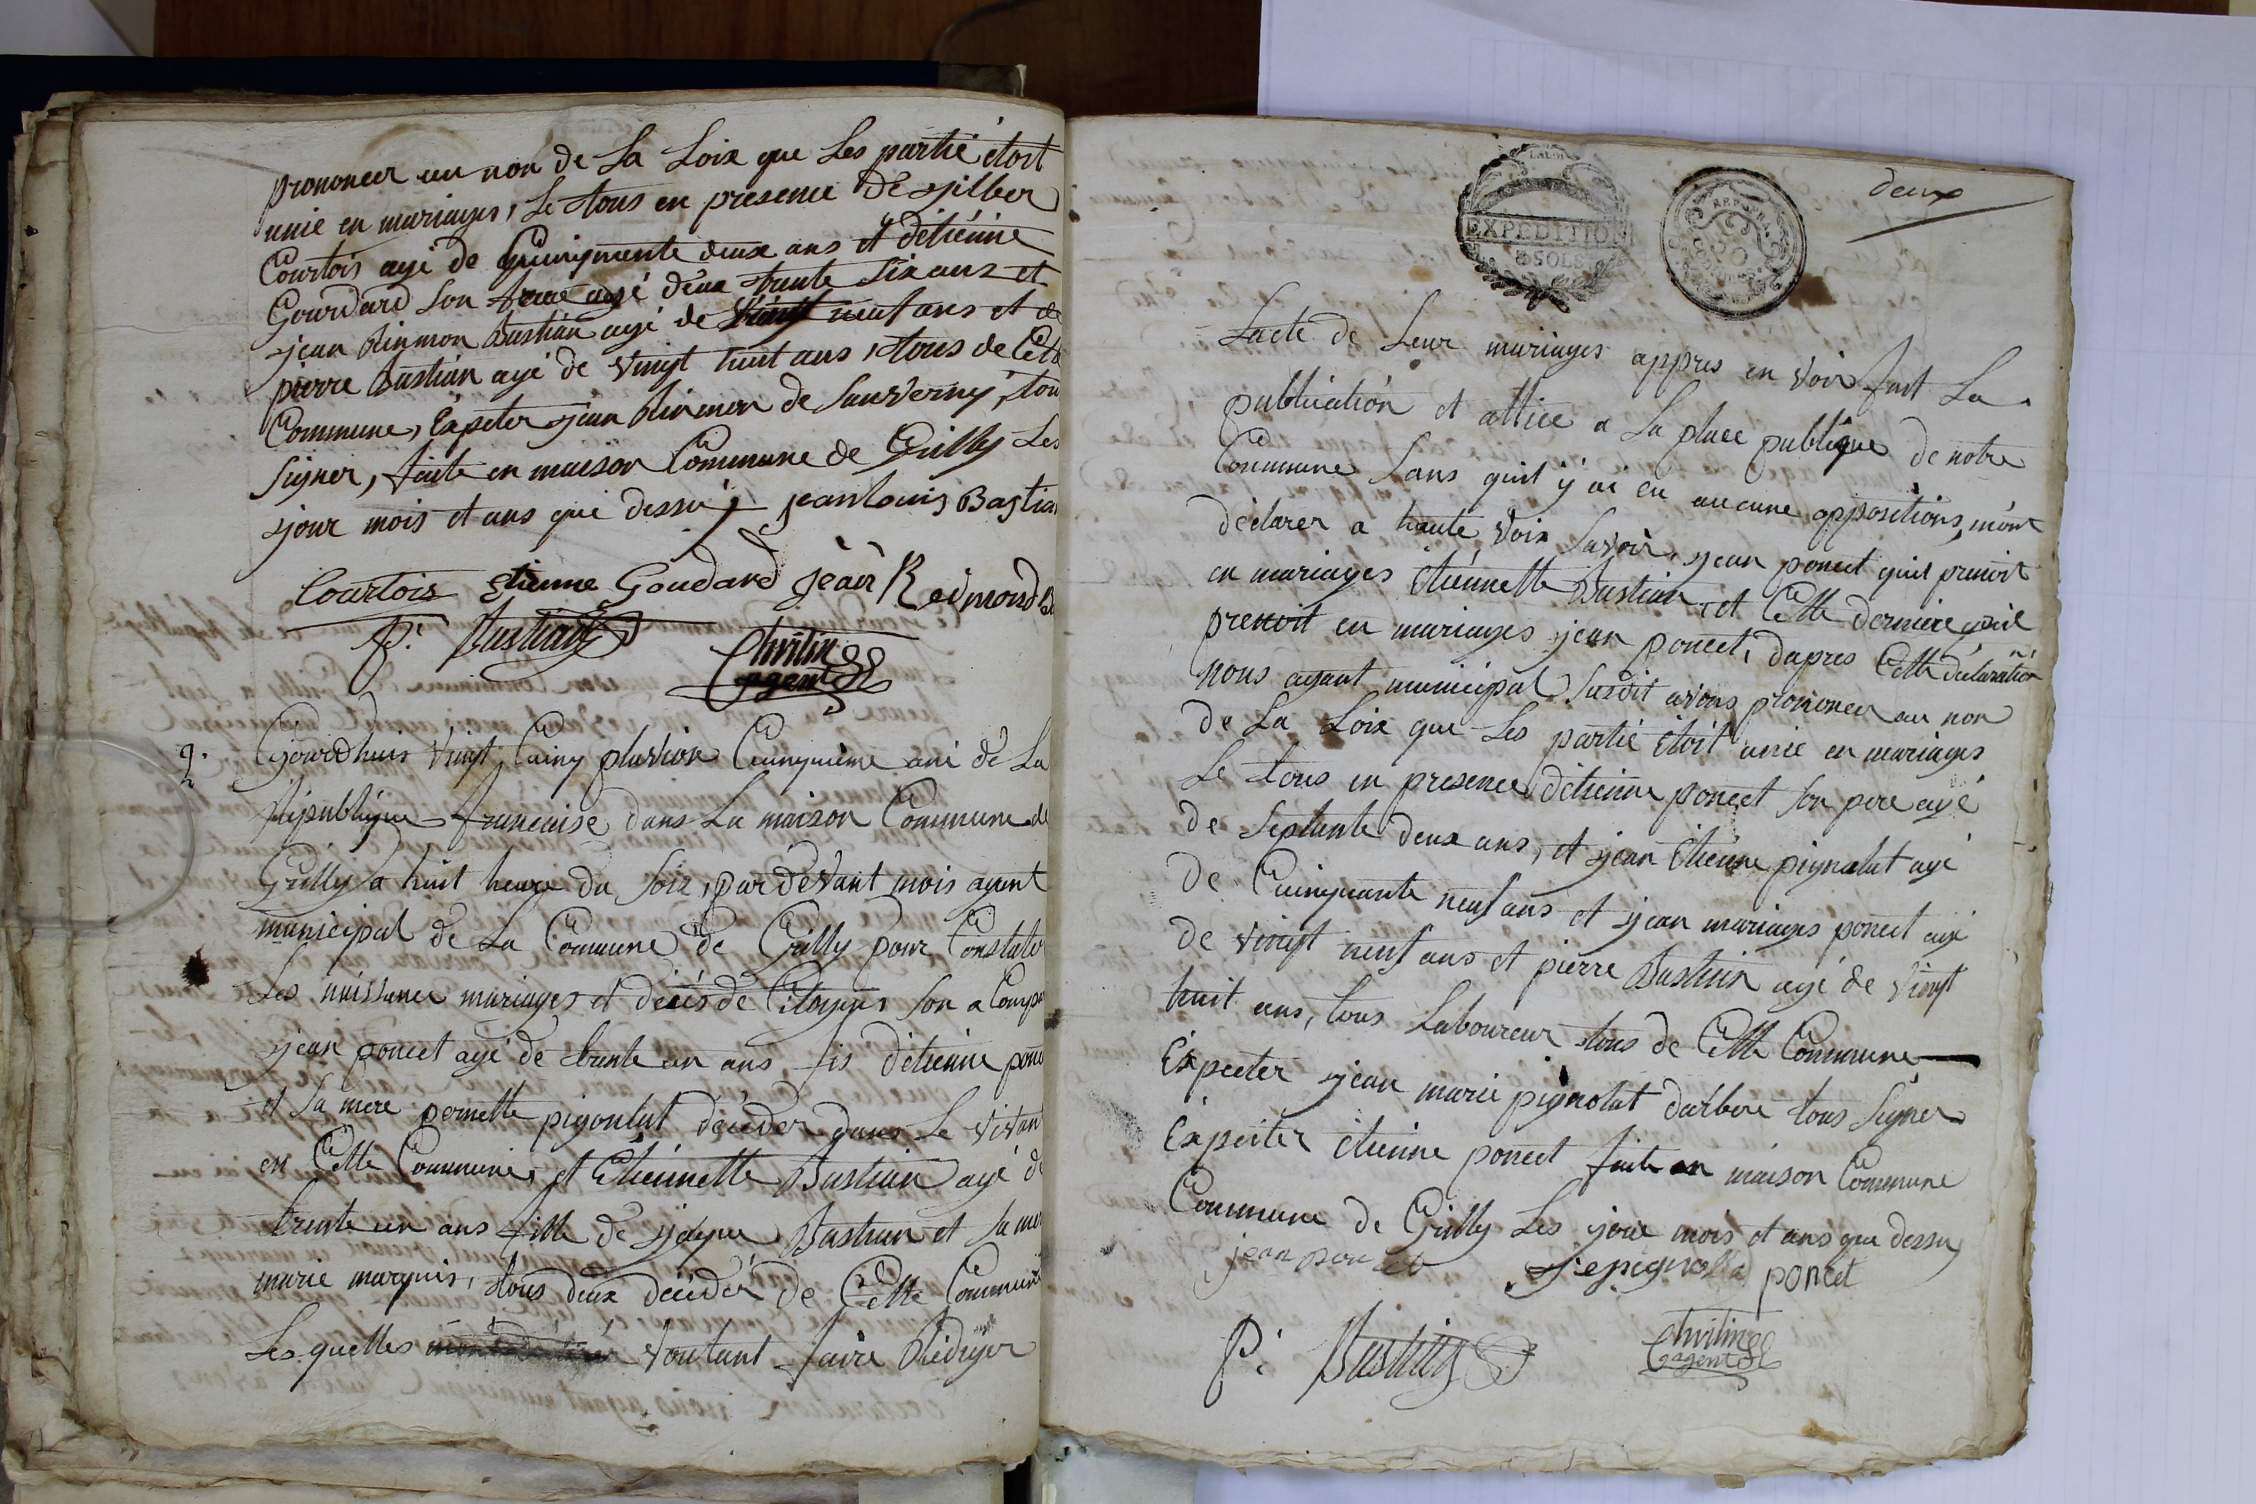 prononcer au non de La Loix que Les partié étoit
unie en mariages, Le tous en presence de gilber
Courtois agé de Quinquente deux ans et détiénne
Gourdard son frere agé deux trante six ans et
jean Rinmon Bastian agé de vingt neuf ans et de
pierre Bastian agé de vingt huit ans, tous de Cette
Commune, Expeter jean Rinmon de Sauverny, tou
signer, faite en maison Commune de Grilly Les
jour mois et ans que dessu jeanlouis Bastian
Courtois Etienne Goudard jean Reimond
p. Bastian
Chvitin
agent
2.
Gjourdhuis vingt Cainq pluvion Cuinquième ané de La
République francaise dans La maison Commune de
Grilly a huit heure du soir, par devant mois agent
municipal de La Commune de Grilly pour Constater
Les naissance mariages et décès de Citoyens son a Compa
jean poncet agé de trante un ans fis détienne ponce
et Sa mere pernette pigonlat décéder dans Le vivan
en Cette Commune, et Etiénnette Bastian agé de
trente un ans fille de Bastian et Sa mere
marie marquis, tous deux décédér de Cette Commune
Les quelles voulant faire Rédiger
deux
EXPEDITION
SOLS
REP. FRA.
50
CENTIMES
Lacte de Leur mariages appres en voir fait La
publication et affice a La place publique de notre
Commune Sans quil y ai eu aucune oppositions, mont
déclarer a haute voix Savoir, jean poncet quil prenoit
en mariages Etiénnette Bastian, et Cette derniere quil
prenoit en mariages jean poncet, dapres Cette déclaration
nous agant municipal Susdit avons prononcer au non
de La Loix que Les partié étoit unie en mariages
Le tous en presence détienne poncet Son pere agé
de Septente deux ans, et jean Etiénne pignalat agé
de Cuinquante neuf ans et jean mariages poncet agé
de vingt neuf ans et pierre Bastian agé de vingt
huit ans, tous Laboureur tous de Cette Commune
Expecter jean marie pignolat darbere tous Signer
Expecter étienne poncet faite en maison Commune
Commune de Grilly Les jour mois et ans que dessu
jean poncet j e pignolat poncet
p. Bastian
Chvitin
agent